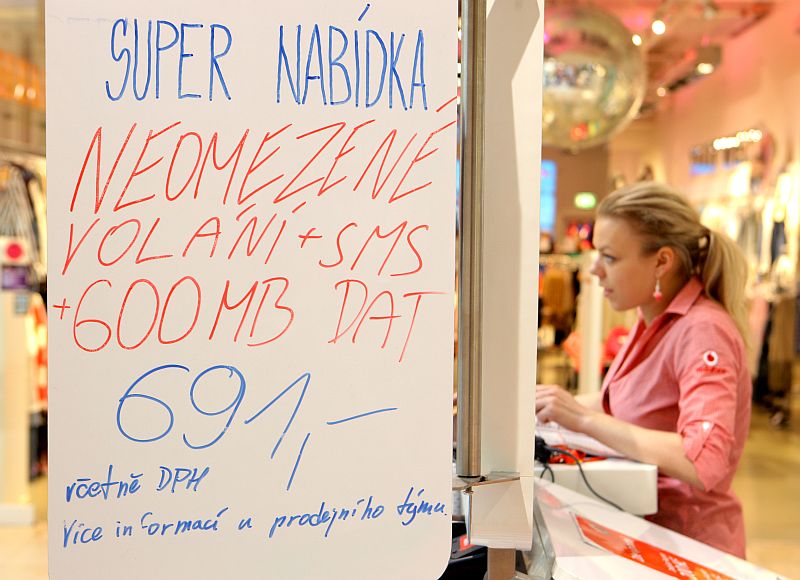 SUPER NABÍDKA
NEOMEZENÉ
VOLÁNÍ + SMS
+600MB DAT
691,-
včetně DPH
Více informací u prodejního týmu.